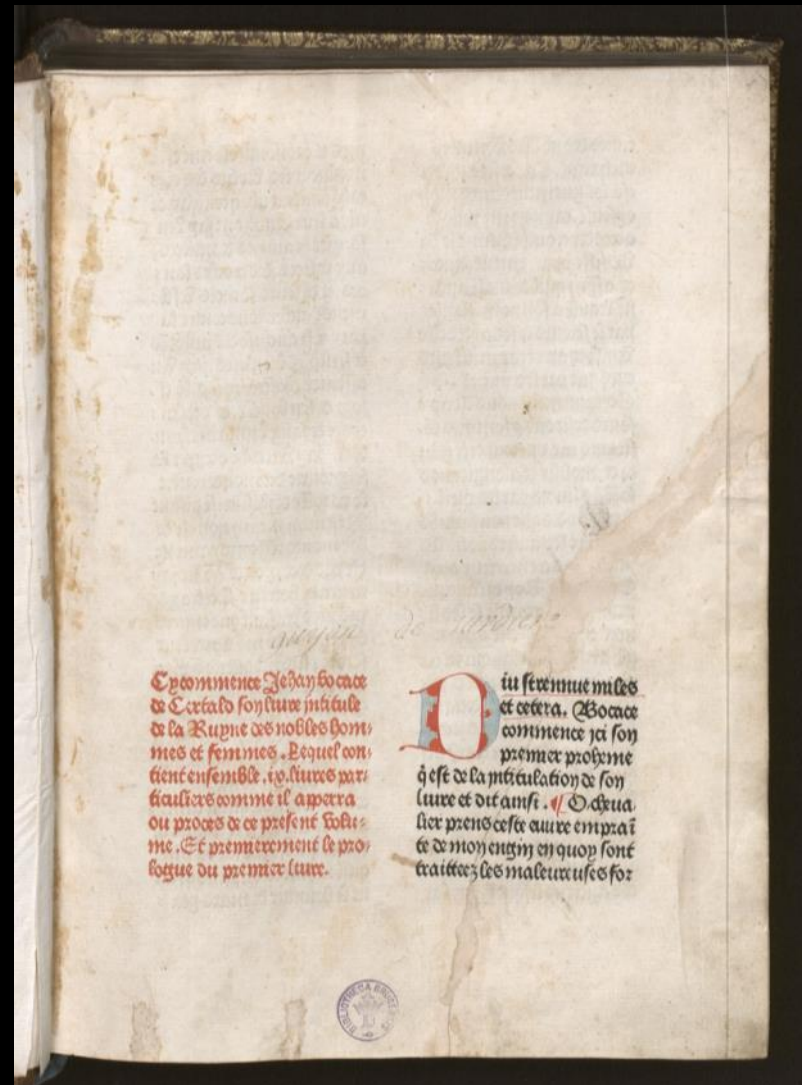 de
Cy commence Jehan bocace
de Certald son liure intitule
de la Ruyne des nobles hom⸗
mes et femmes . Lequel con⸗
tient ensemble .ix. liures par⸗
ticuliers comme il apperra
ou proces de ce present volu⸗
me . Et premierement le pro⸗
logue du premier liure.
Diu strennue miles
et cetera. Bocace
commence ici son
premier proheme
q̃ est de la intitulation de son
liure et dit ainsi . ¶ O cheua
lier prens ceste euure emprai̅
te de mon engin en quoy sont
traitteez les maleureuses for
BIBLIOTHECA